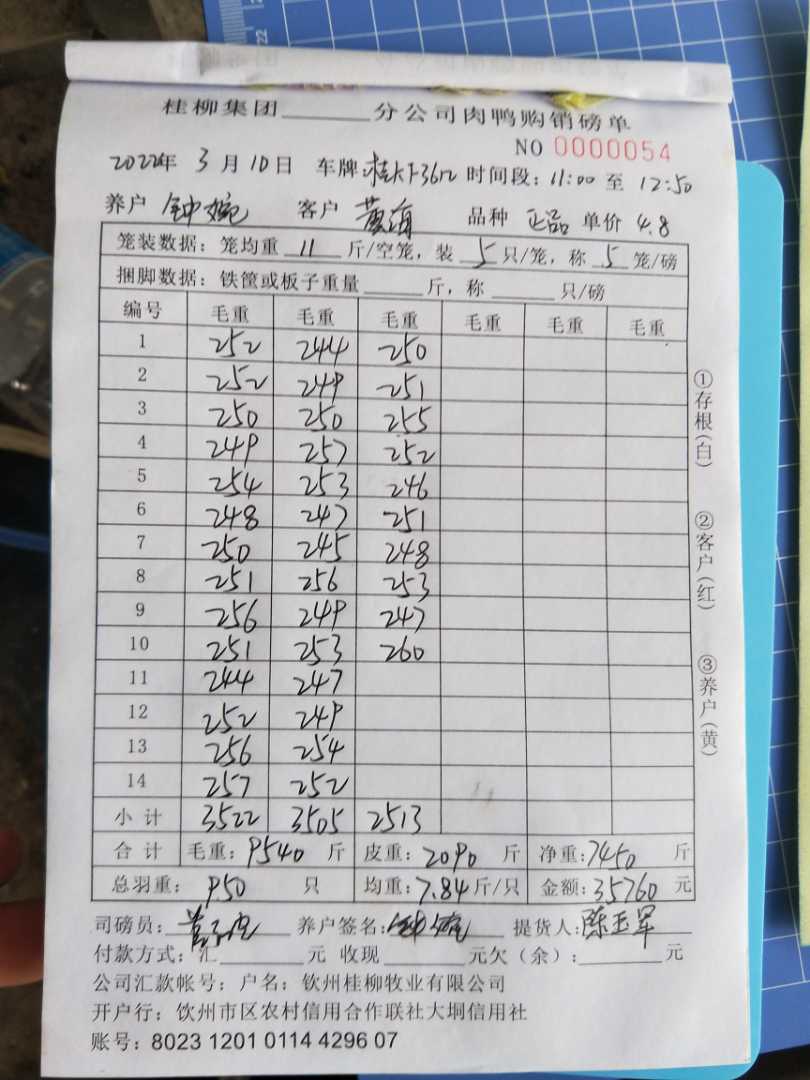 桂柳集团______分公司肉鸭购销磅单
NO 0000054
2022年 3月10日 车牌:桂KF3612 时间段:11:00 至 12:50
养户 钟婉 客户 黄海 品种 正品 单价 4.8
笼装数据:笼均重 11 斤/空笼,装 5 只/笼,称 5 笼/磅
捆脚数据:铁筐或板子重量______斤,称______只/磅
编号 毛重 毛重 毛重 毛重 毛重 毛重
1 252 244 250
2 252 249 251
3 250 250 255
4 249 257 252
5 254 253 246
6 248 247 251
7 250 245 248
8 251 256 253
9 256 249 247
10 251 253 260
11 244 247
12 252 249
13 256 254
14 257 252
小计 3522 3505 2513
合计 毛重:9540 斤 皮重:2090 斤 净重:7450 斤
总羽重: 950 只 均重:7.84斤/只 金额:35760 元
司磅员: 养户签名:钟婉 提货人:陈玉军
付款方式:汇______元 收现______元欠(余):______元
公司汇款帐号:户名:钦州桂柳牧业有限公司
开户行:钦州市区农村信用合作联社大垌信用社
账号:8023 1201 0114 4296 07
①存根(白)
②客户(红)
③养户(黄)